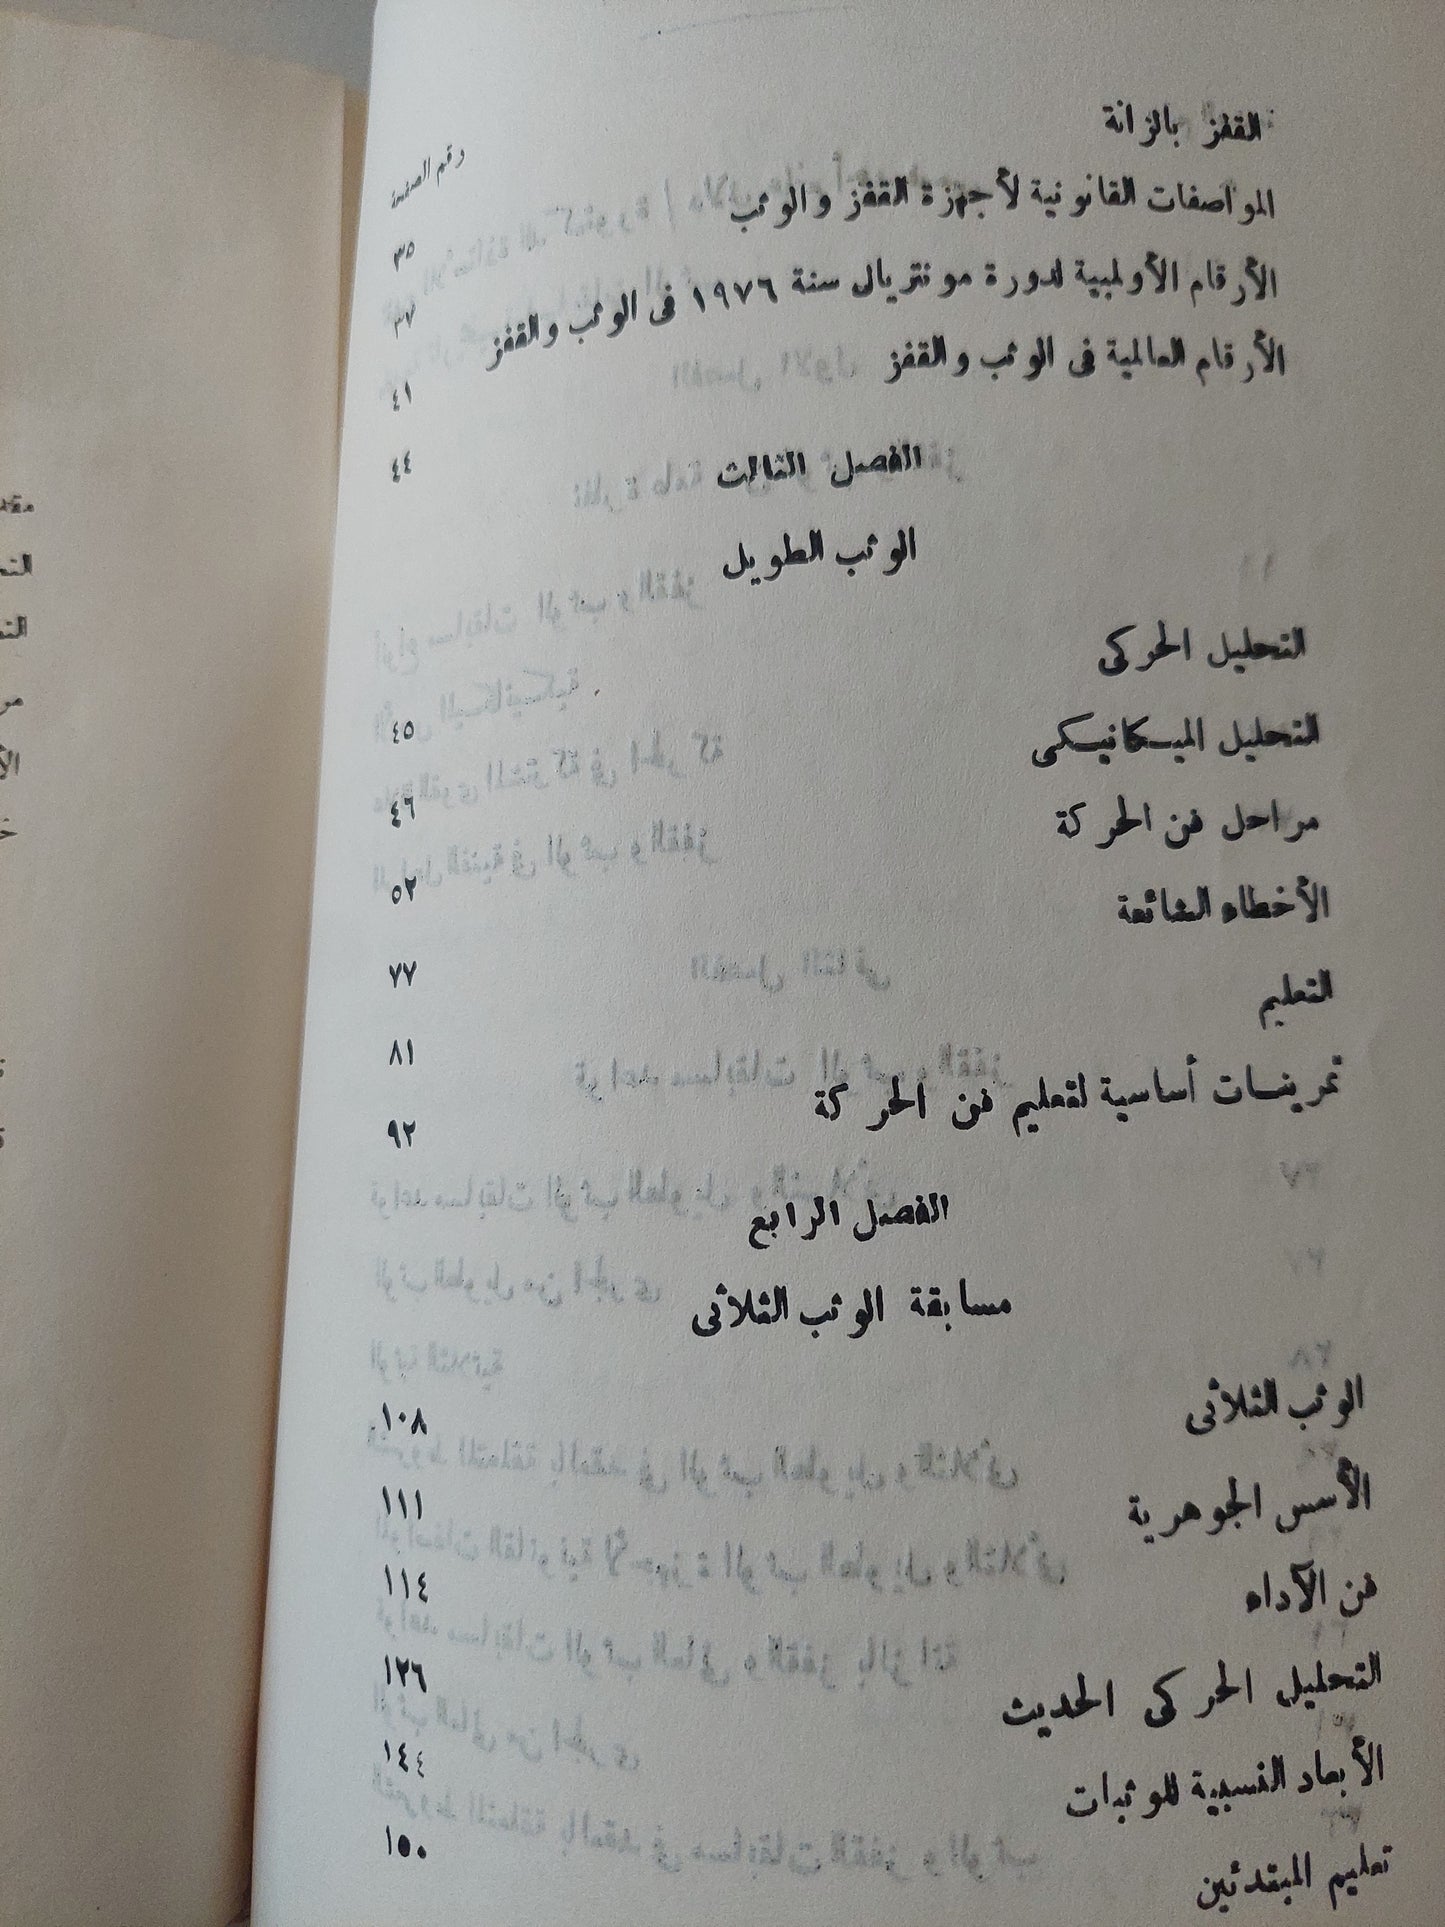 رقم الصفحة
القفز بالزانة ٣٥
المواصفات القانونية لأجهزة القفز والوثب ٣٧
الأرقام الأولمبية لدورة مونتريال سنة ١٩٧٦ فى الوثب والقفز ٤١
الأرقام العالمية فى الوثب والقفز ٤٤
الفصل الثالث
الوثب الطويل
التحليل الحركى ٤٥
التحليل الميكانيكى ٤٦
مراحل فن الحركة ٥٢
الأخطاء الشائعة ٧٧
التعليم ٨١
تمرينات أساسية لتعليم فن الحركة ٩٢
الفصل الرابع
مسابقة الوثب الثلاثى
الوثب الثلاثى ١٠٨
الأسس الجوهرية ١١١
فن الآداء ١١٤
التحليل الحركى الحديث ١٢٦
الأبعاد النسبية للوثبات ١٤٤
تعليم المبتدئين ١٥٠